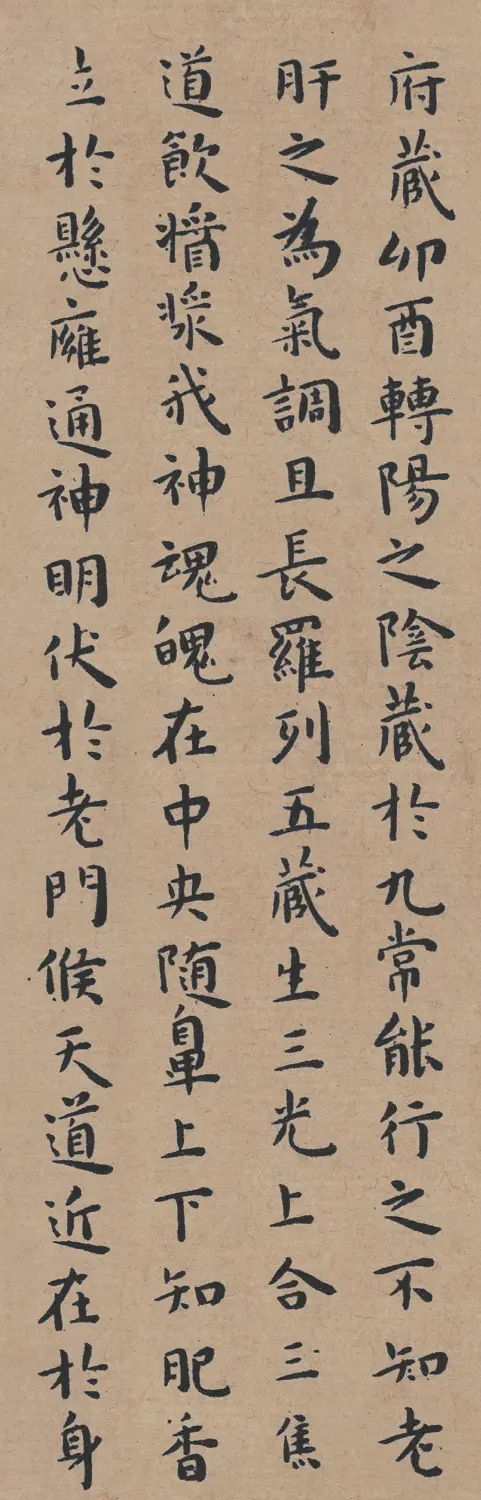 府藏卯酉轉陽之陰藏於九常能行之不知老
肝之為氣調且長羅列五藏生三光上合三焦
道飲醬漿我神魂魄在中央随鼻上下知肥香
立於懸廱通神明伏於老門候天道近在於身